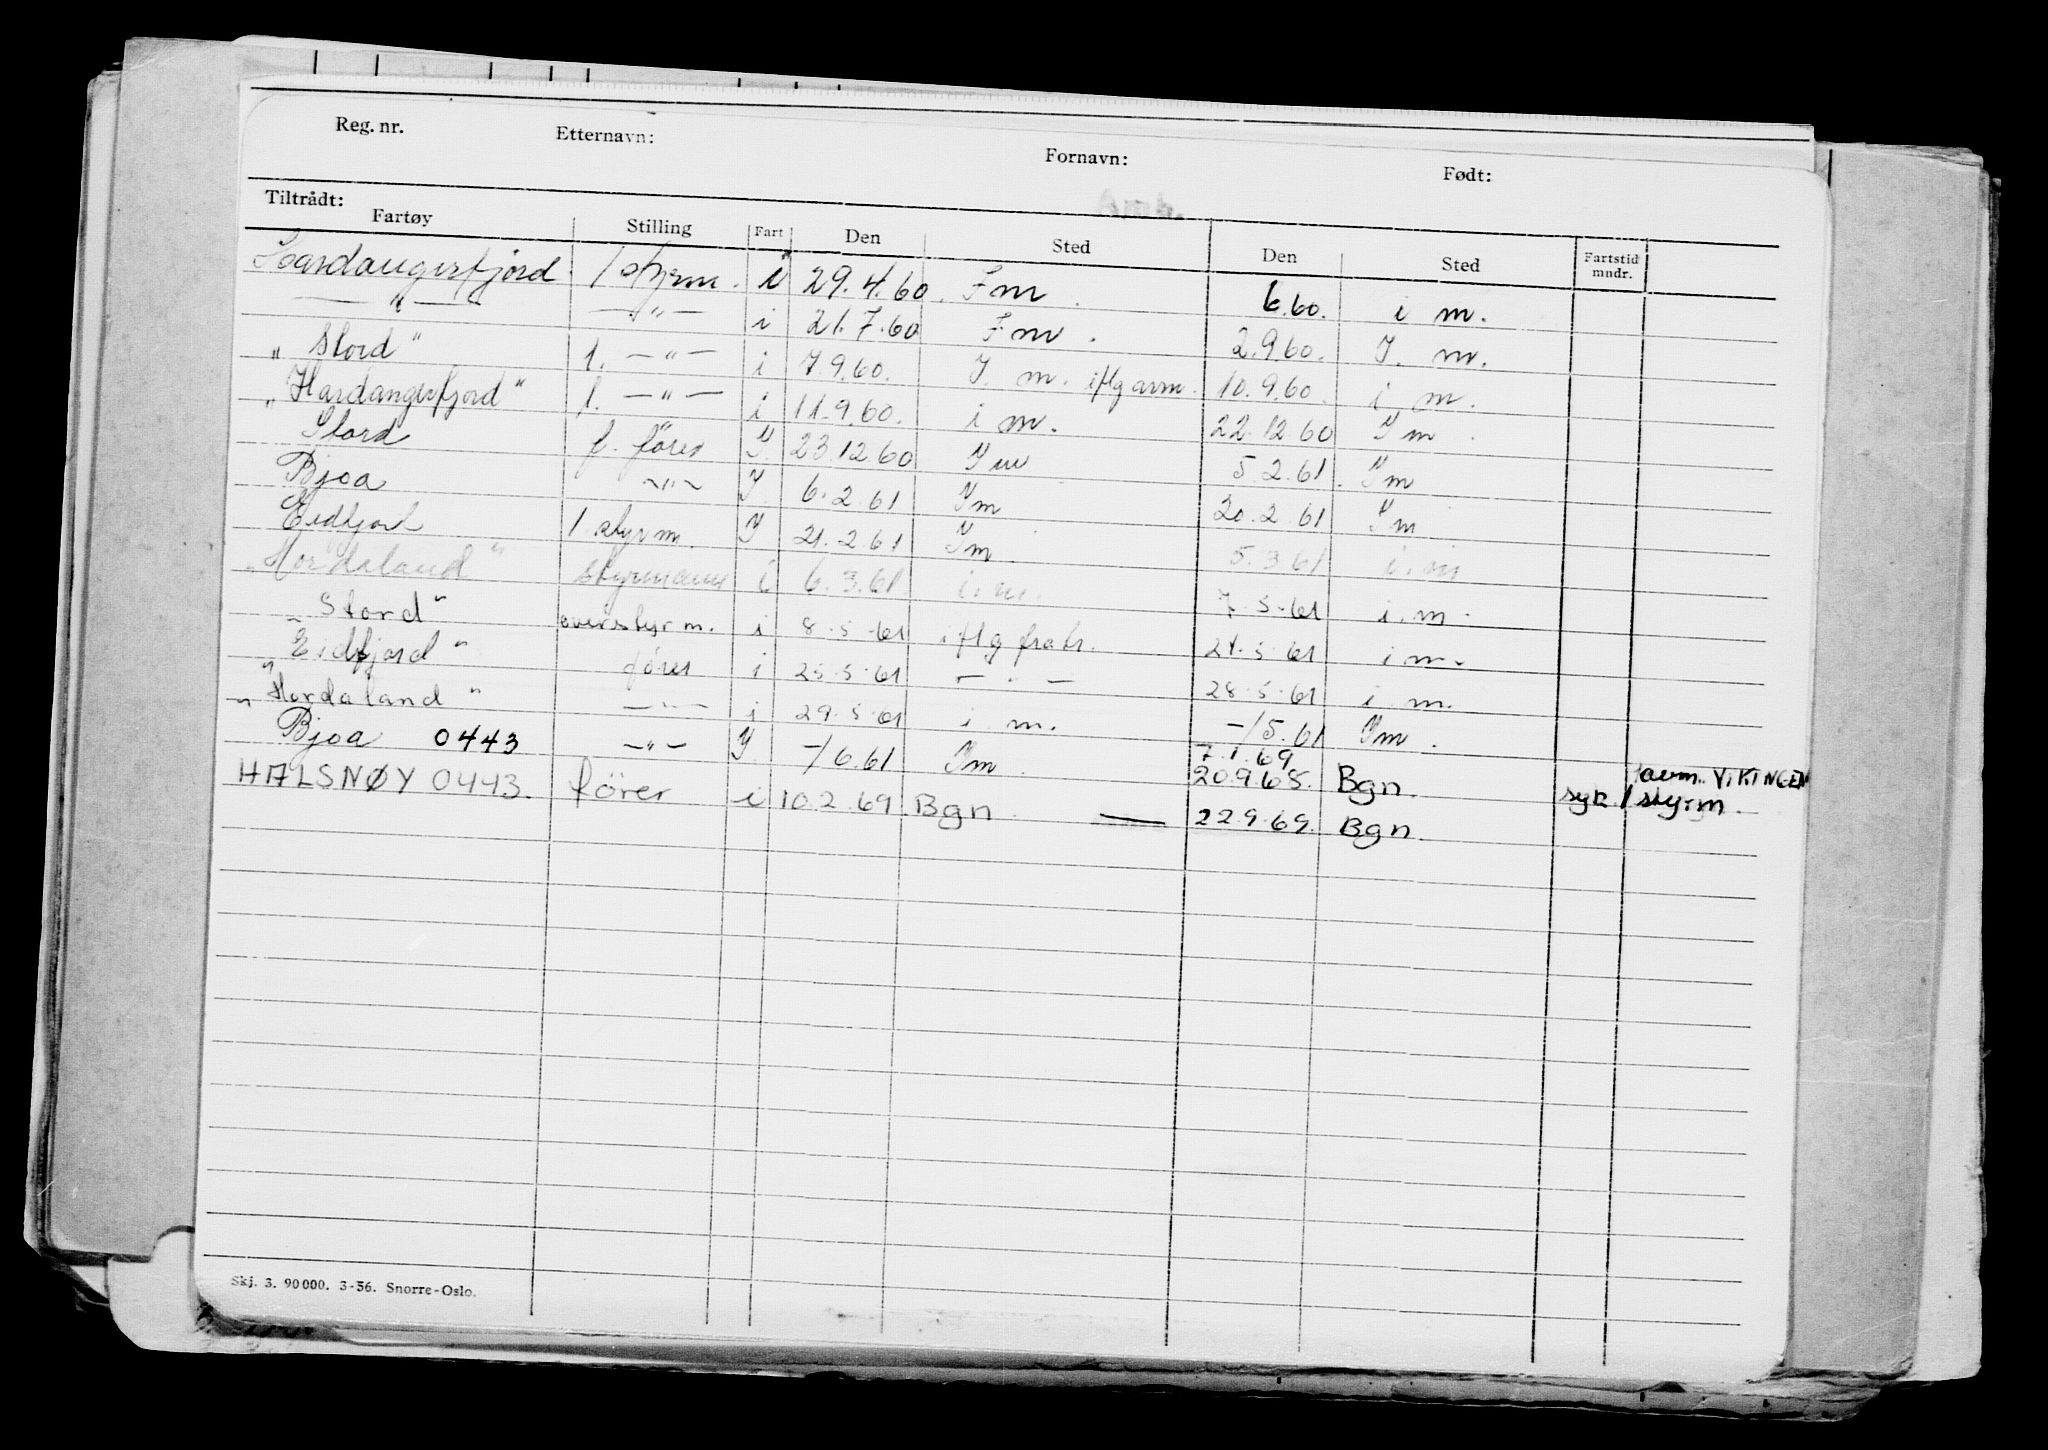 Reg. nr. Etternavn: Fornavn: Født:
Tiltrådt:
Fartøy Stilling Fart Den Sted Den Sted Fartstid mndr.
Hardangerfjord 1 styrm. i 29.4.60. I m. 6.60. i m.
— " — — " — i 21.7.60 I m. 2.9.60. I. m.
"Stord" 1. — " — i 7.9.60. I. m. iflg avm. 10.9.60. i m.
"Hardangerfjord" 1. — " — i 11.9.60. i m. 22.12.60 I m.
Stord f. fører I. 23.12.60 I m 5.2.61. I m
Bjoa — " — I. 6.2.61 I m 20.2.61 I m
Eidfjord 1 styrm. I 21.2.61 I m 5.3.61 i. m
"Hordaland" styrmann i 6.3.61. i. m. 7.5.61 i. m.
"Stord" overstyrm. i 8.5.61 iflg fratr. 24.5.61 i m.
"Eidfjord" fører i 25.5.61 — " — 28.5.61 i m.
"Hordaland" — " — i 29.5.61 i m. -/5.61 I m.
Bjoa 0443 — " — I. -/6.61 I m 7.1.69
20.9.68. Bgn. syk avm. VIKINGEN
1 styrm.
HALSNØY 0443. fører i 10.2.69. Bgn. — 22.9.69. Bgn.
Skj. 3. 90 000. 3-56. Snorre-Oslo.